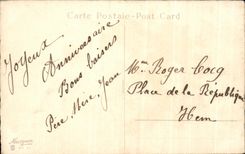 Carte Postale-Post Card
Joyeux
Anniversaire
Bons baisers
Père, Mère, Jean
Mme Roger Cocq
Place de la République
Hem